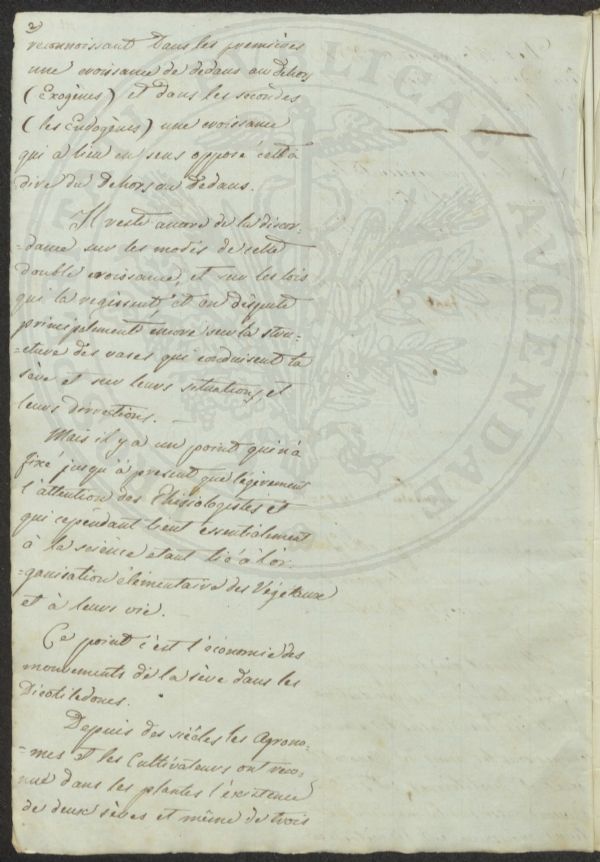 2)
reconnoissant dans les premières
une croissance de dedans au dehors
(Exogènes) et dans les secondes
(les Endogènes) une croissance
qui a lieu en sens opposé c'est à
dire du dehors au dedans.
Il reste encore de la discor-
-dance sur les modes de cette
double croissance, et sur les lois
qui la regissent, et on dispute
principalement encore sur la stru-
-cture des vases qui conduisent la
sève et sur leurs situations, et
leurs directions. —
Mais il y a un point qui n'a
fixé jusqu'à present que légèrement
l'attention des Phisiologistes et
qui cependant tient essentialement
à la science etant lié à l'or-
-ganisation élémentaire des Végétaux
et à leurs vie. —
Ce point c'est l'économie des
mouvements de la sève dans les
Dicotiledones.
Depuis des siècles les Agrono-
-mes et les Cultivateurs ont reco-
nné dans les plantes l'existence
de deux sèves et même de trois
VBLICAE AVGENDAE